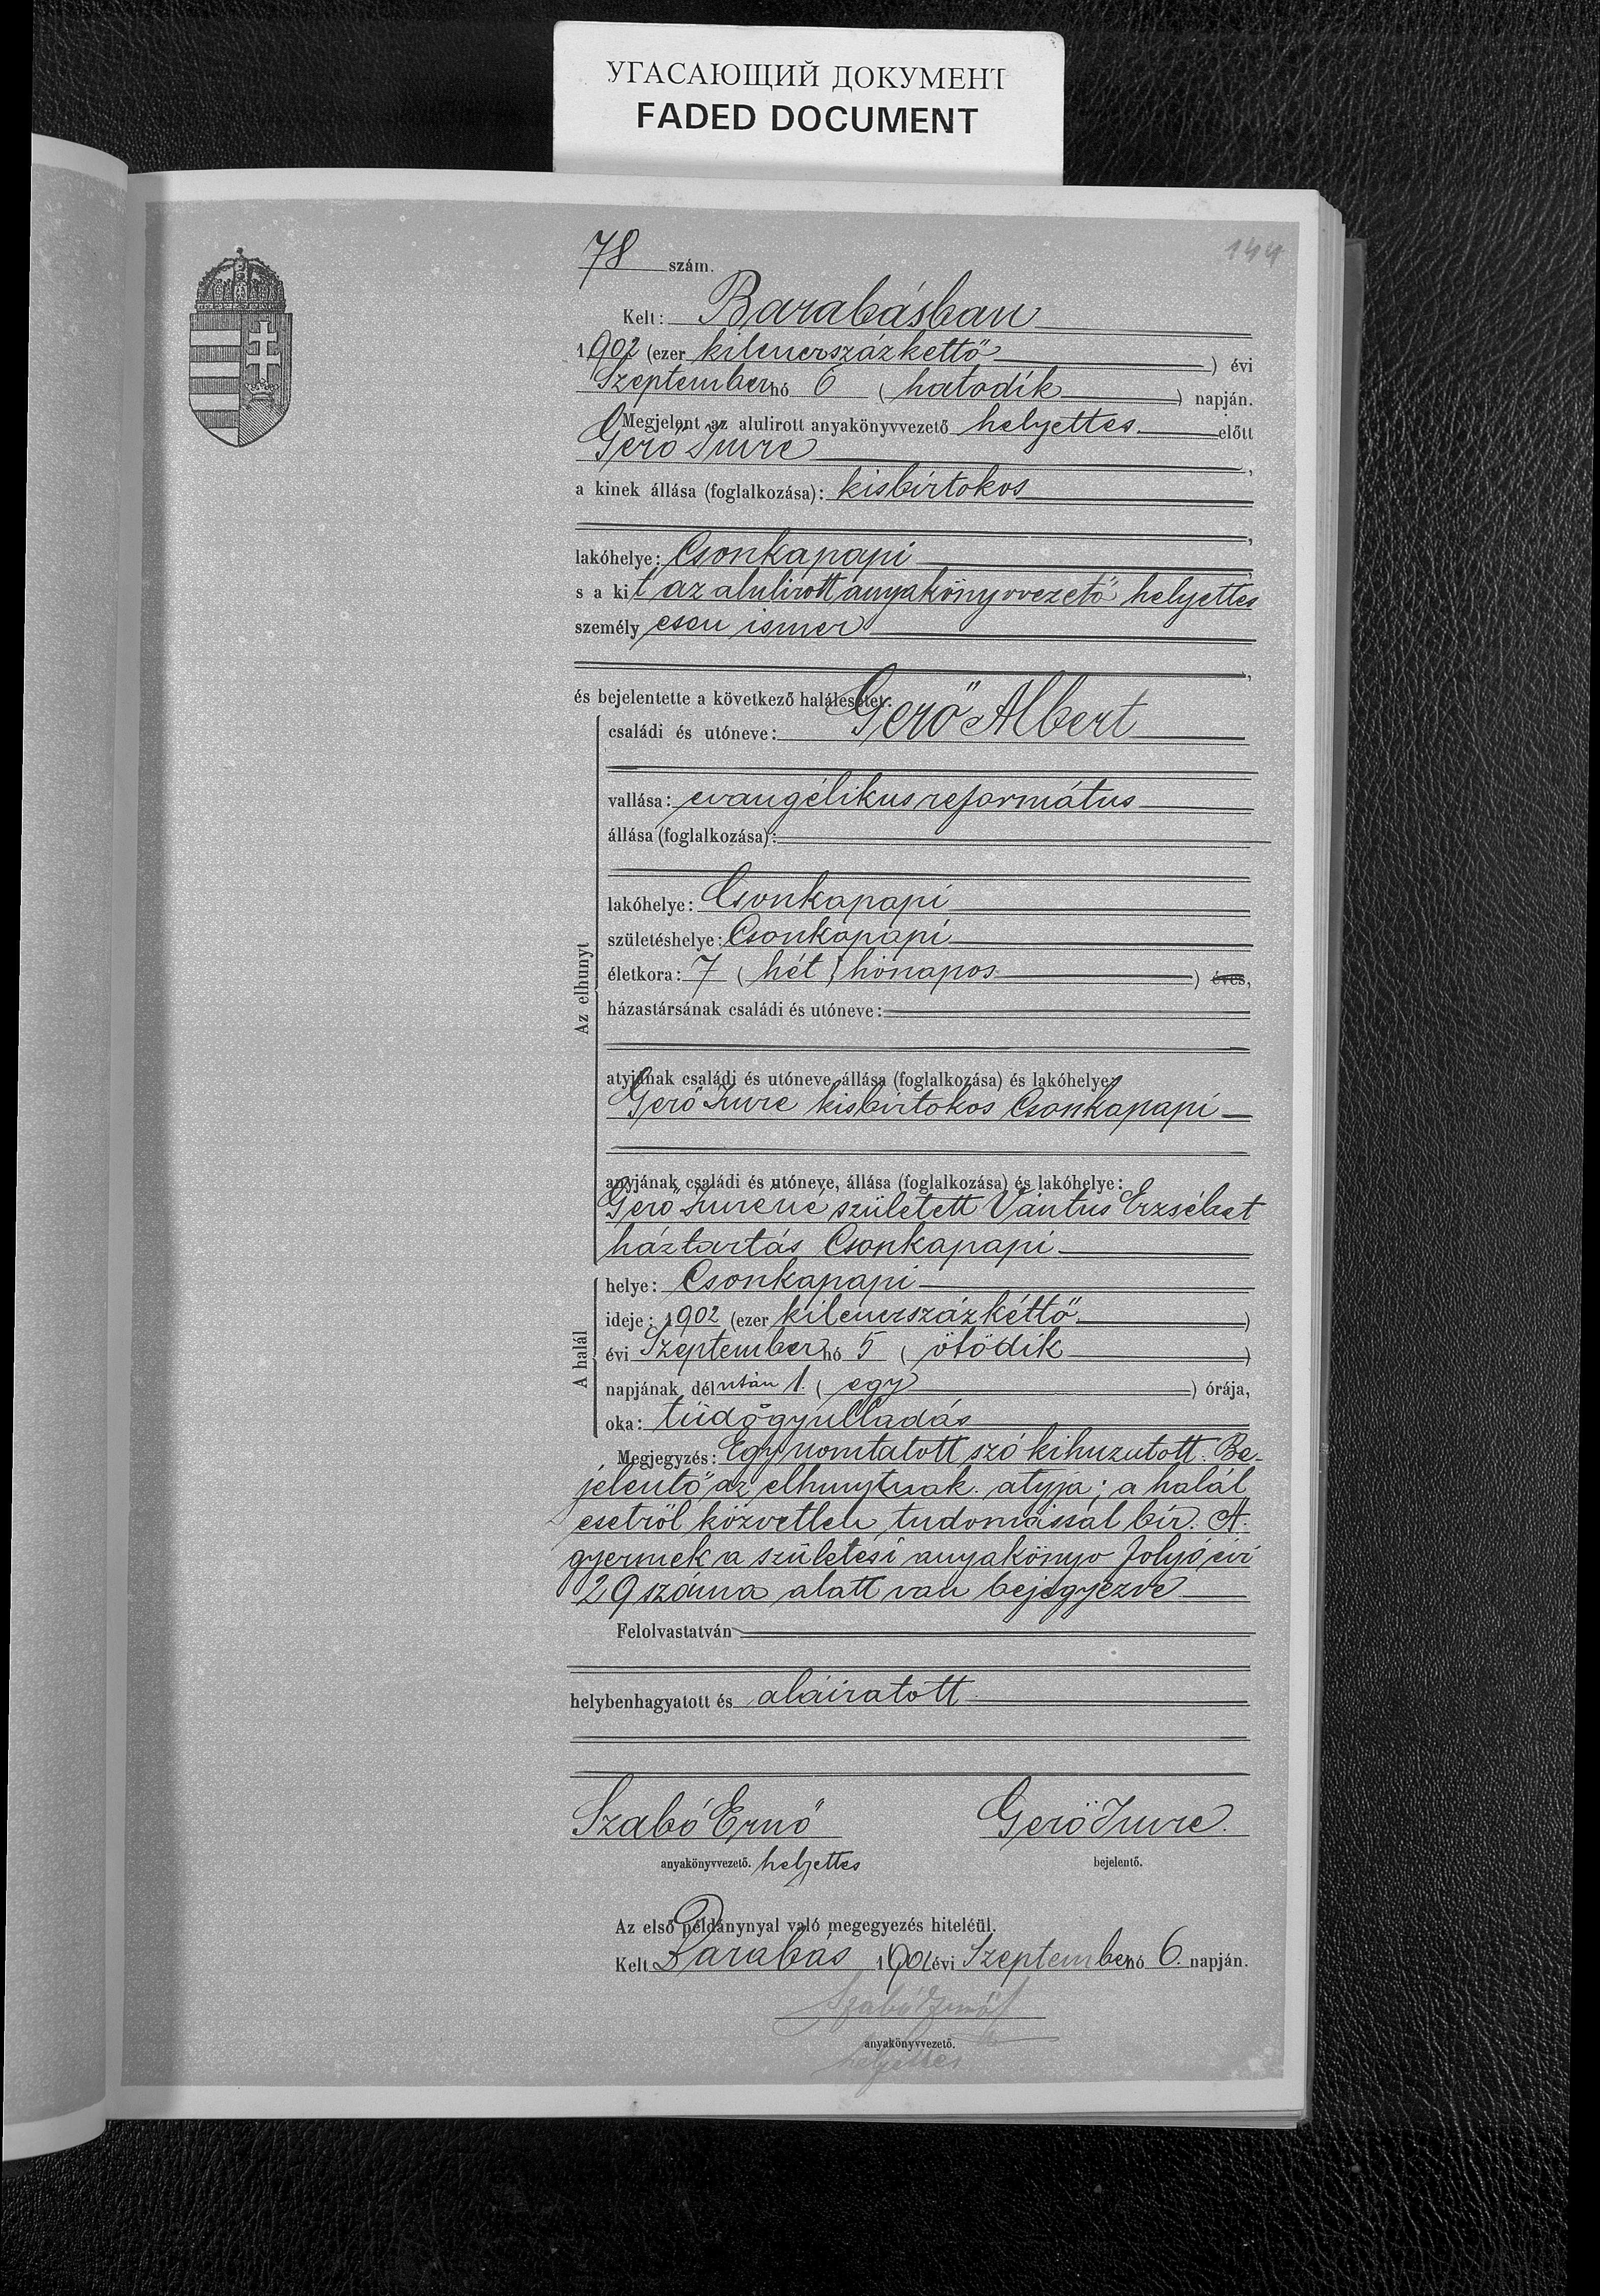 УГАСАЮЩИЙ ДОКУМЕНТ
FADED DOCUMENT
144
78 szám.
Kelt: Barabásban
1902 (ezer kilenczszázkettő) évi
Szeptember hó 6 (hatodik) napján.
Megjelent az alulirott anyakönyvvezető helyettes előtt
Gerő Imre,
a kinek állása (foglalkozása): kisbirtokos,
lakóhelye: Csonkapapi,
s a kit az alulirott anyakönyvvezető helyettes
személyesen ismer,
és bejelentette a következő halálesetet:
családi és utóneve: Gerő Albert
vallása: evangélikus református
állása (foglalkozása):
lakóhelye: Csonkapapi
születéshelye: Csonkapapi
Az elhunyt
életkora: 7 (hét) hónapos) éves,
házastársának családi és utóneve:
atyjának családi és utóneve, állása (foglalkozása) és lakóhelye:
Gerő Imre kisbirtokos Csonkapapi
anyjának családi és utóneve, állása (foglalkozása) és lakóhelye:
Gerő Imréné született Vántus Erzsébet
háztartás Csonkapapi
helye: Csonkapapi
ideje: 1902 (ezer kilenczszázkéttő)
A halál
évi Szeptember hó 5 (ötödik)
napjának délután 1. (egy) órája,
oka: tüdőgyulladás
Megjegyzés: Egy nomtatott szó kihuzutott. Be-
jelentő az elhunytnak atyja; a halál
esetről közvetlen tudomással bir. A
gyermek a születési anyakönyv folyó évi
29 száma alatt van bejegyezve
Felolvastatván
helybenhagyatott és aláiratott
Szabó Ernő Gerő Imre.
anyakönyvvezető. helyettes bejelentő.
Az első példánynyal való megegyezés hiteléül.
Kelt Barabás 1902 évi Szeptember hó 6. napján.
Szabó Ernő
anyakönyvvezető.
helyettes